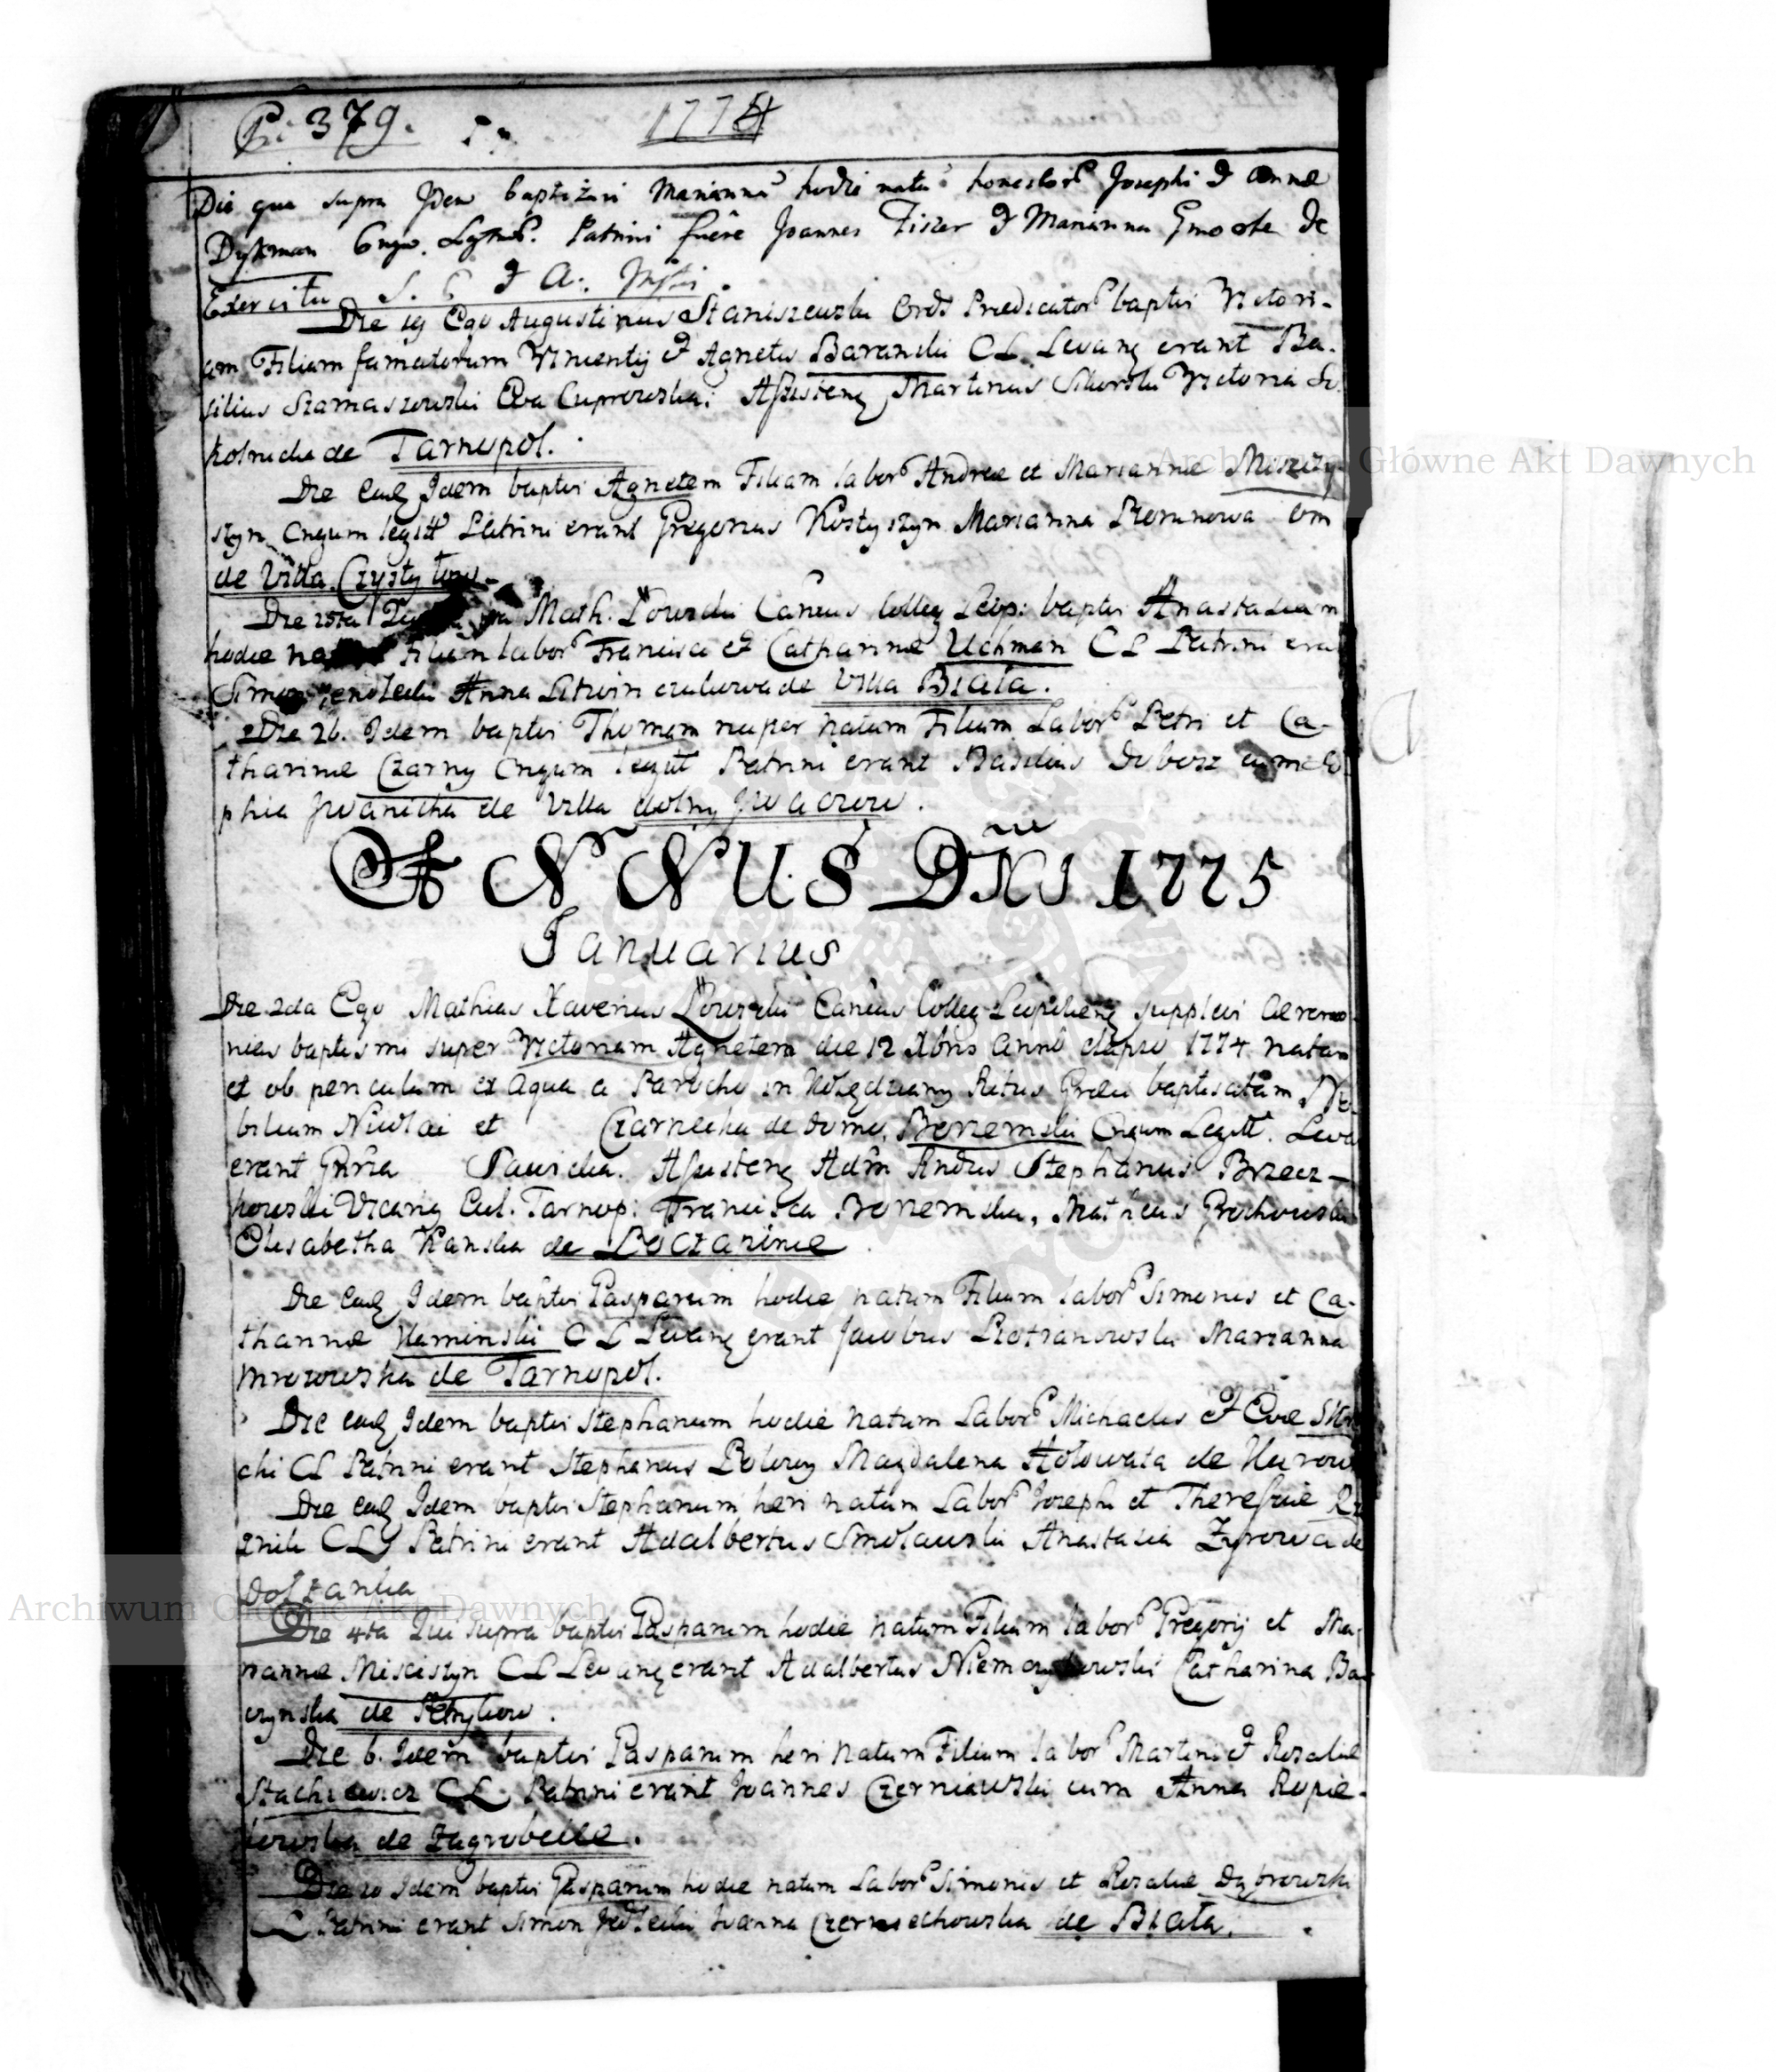 P: 379.
1774
Die qua supra Idem baptizavi Mariannã hodie natã honestor. Josephi & Annæ
Dykman Cngu. Lgtmor. Patrini fuêre Joannes Fiszer & Marianna Gmoste de
Exercitu S. C. & A:
Die 19 Ego Augustinus Staniszewski Ords Prædicator baptvi Victori-
am Filiam famatorum Vincentij & Agnetis Baranski CL Levang erant Ba-
silius Szamaszowski Eva Cuprowska: Assisteng Martinus Sikorski Victoria So-
kolnicka de Tarnopol.
Die eadg Idem baptvi Agnetem Filiam labor Andreæ et Mariannæ Misczy-
szyn Cngum legitt Patrini erant Gregorius Kostyszyn Marianna
de Villa Czystyłow
Die 25ta Math. Łowski Canus Colleg Leop: baptvi Anastasiam
hodie Filiam labor Francisci & Catharinæ Uchman CL Patrini era
Simon Anna de Villa Biała.
Die 26. Idem baptvi Thomam nuper natum Filium Labor Petri et Ca-
tharinæ Czarny Cngum legitt Patrini erant Basilius Dobosz cum So-
phia Iwanicka de Villa dolny Iwaczow.
ANNUS DNI 1775
Januarius
Die 2da Ego Mathias Xaverius Łowski Canus Colleg Leopolieng supplevi Ceremo-
nias baptismi super Victoriam Agnetem die 12 Xbris Anno elapso 1774 natam
et ob periculum ex Aqua a Parocho in Ritus Græci baptisatam No-
bilium Nicolai et Czarnecka de domo Boremski Cngum Legitt. Leva
erant Gnrsa Sawicka. Assisteng Adm Rndus Stephanus Brzecz-
kowski Vicarig Ecl. Tarnop: Francisca Boremska, Matheus Grochowski
Elisabetha Kanska de Poczapince
Die eadg Idem baptvi Gasparum hodie natum Filium labor Simonis et Ca-
tharinæ Kaminski CL Levang erant Jacobus Piotrianowski Marianna
Mrozowska de Tarnopol.
Die eadg Idem baptvi Stephanum hodie natum Labor Michaelis & Evæ
chi CL Patrini erant Stephanus Magdalena Hołowata de
Die eadg Idem baptvi Stephanum heri natum Labor Josephi et Theresiæ Rz
znik CL Patrini erant Adalbertus Smolawski Anastasia Zyrowa de
Dołzanka
Die 4ta Qui supra baptvi Gasparum hodie natum Filium labor Gregorij et Ma-
riannæ Misciszyn CL Levang erant Adalbertus Catharina Ba
czynska de Petrykow.
Die 6. Idem baptvi Gasparum heri natum Filium labor Martini & Rosaliæ
Stachiewicz CL Patrini erant Joannes Czerniawski cum Anna Ropie-
kowska de Zagrobelle.
Die 10 Idem baptvi Gasparum hodie natum Labor Simonis et Rosaliæ Dąbrowski
CL Patrini erant Simon Joanna Czerniechowska de Biała.
Archiwum Główne Akt Dawnych
Archiwum Główne Akt Dawnych